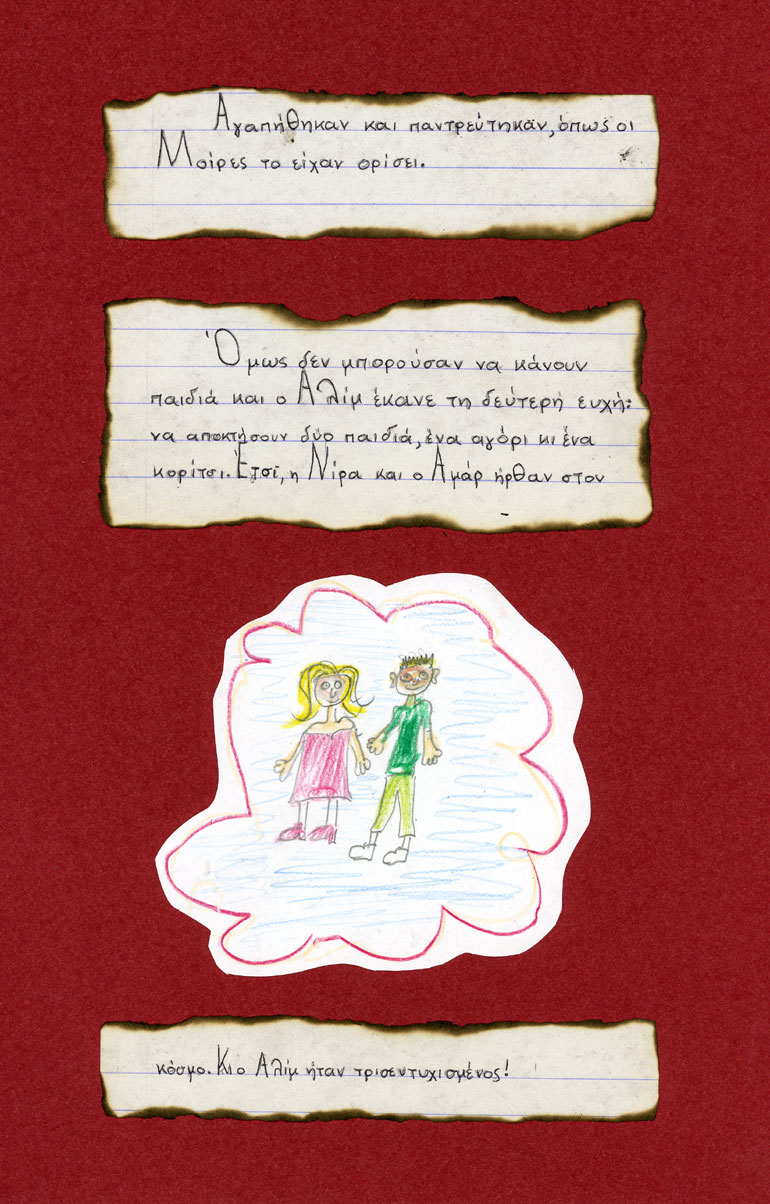 Αγαπήθηκαν και παντρεύτηκαν, όπως οι
Μοίρες το είχαν ορίσει.
Όμως δεν μπορούσαν να κάνουν
παιδιά και ο Αλίμ έκανε τη δεύτερή ευχή:
να αποκτήσουν δύο παιδιά, ένα αγόρι κι ένα
κορίτσι. Έτσι, η Νίρα και ο Αμάρ ήρθαν στον
κόσμο. Κι ο Αλίμ ήταν τρισευτυχισμένος!